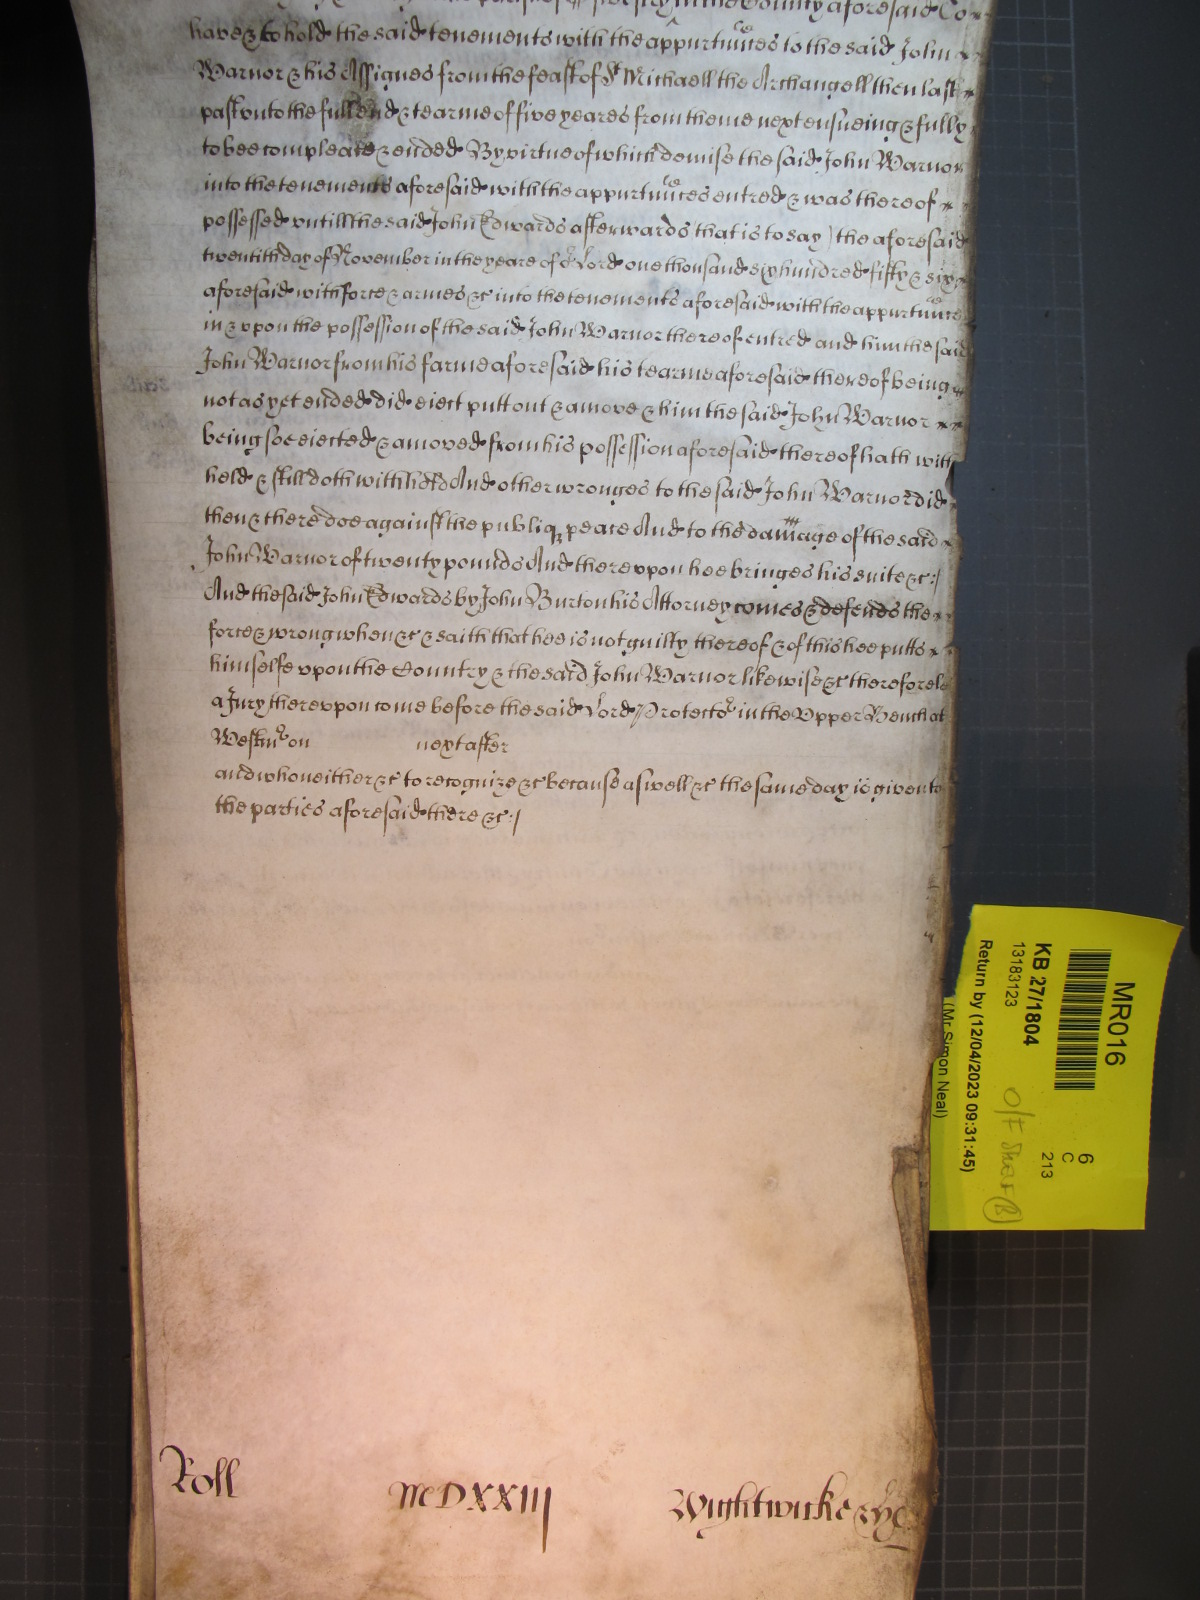 in the County aforesaid To
have & to hold the said tenements with the appurtũnces to the said John
Warnor & his Assignes from the feast of St Michaell the Archangell then last
past unto the full end & tearme of five yeares from thence next ensueing & fully
to bee compleate & ended By virtue of which demise the said John Warnor
into the tenements aforesaid with the appurtũnces entred & was thereof
possessed vntill the said John Edwards afterwards that is to say) the aforesaid
twentith day of November in the yeare of or Lord one thousand six hundred fifty & six
aforesaid with force & armes &c into the tenements aforesaid with the appurtũnces
in & vpon the possession of the said John Warnor thereof entred and him the said
John Warnor from his farme aforesaid his tearme aforesaid thereof being
not as yet ended did eject putt out & amove & him the said John Warnor
being soe ejected & amoved from his possession aforesaid thereof hath with
held & still doth withhold And other wronges to the said John Warnor did
then & there doe against the publiq peace And to the damage of the said
John Warnor of twenty pounds And therevpon hee bringes his suite &c:/
And the said John Edwards by John Burton his Attorney comes & defends the
force & wrong when &c & saith that hee is not guilty thereof & of this hee putts
himselfe vpon the Country & the said John Warnor likewise &c therefore let
a Jury therevpon come before the said Lord Protector in the Vpper Bench at
Westmr on next after
and who neither &c to recognize &c because aswell &c the same day is given to
the parties aforesaid there &c:/
Roll MDXXIII Wightwicke &
MR016
KB 27/1804
13183123
Return by (12/04/2023 09:31:45)
(Mr Simon Neal)
6
C
213